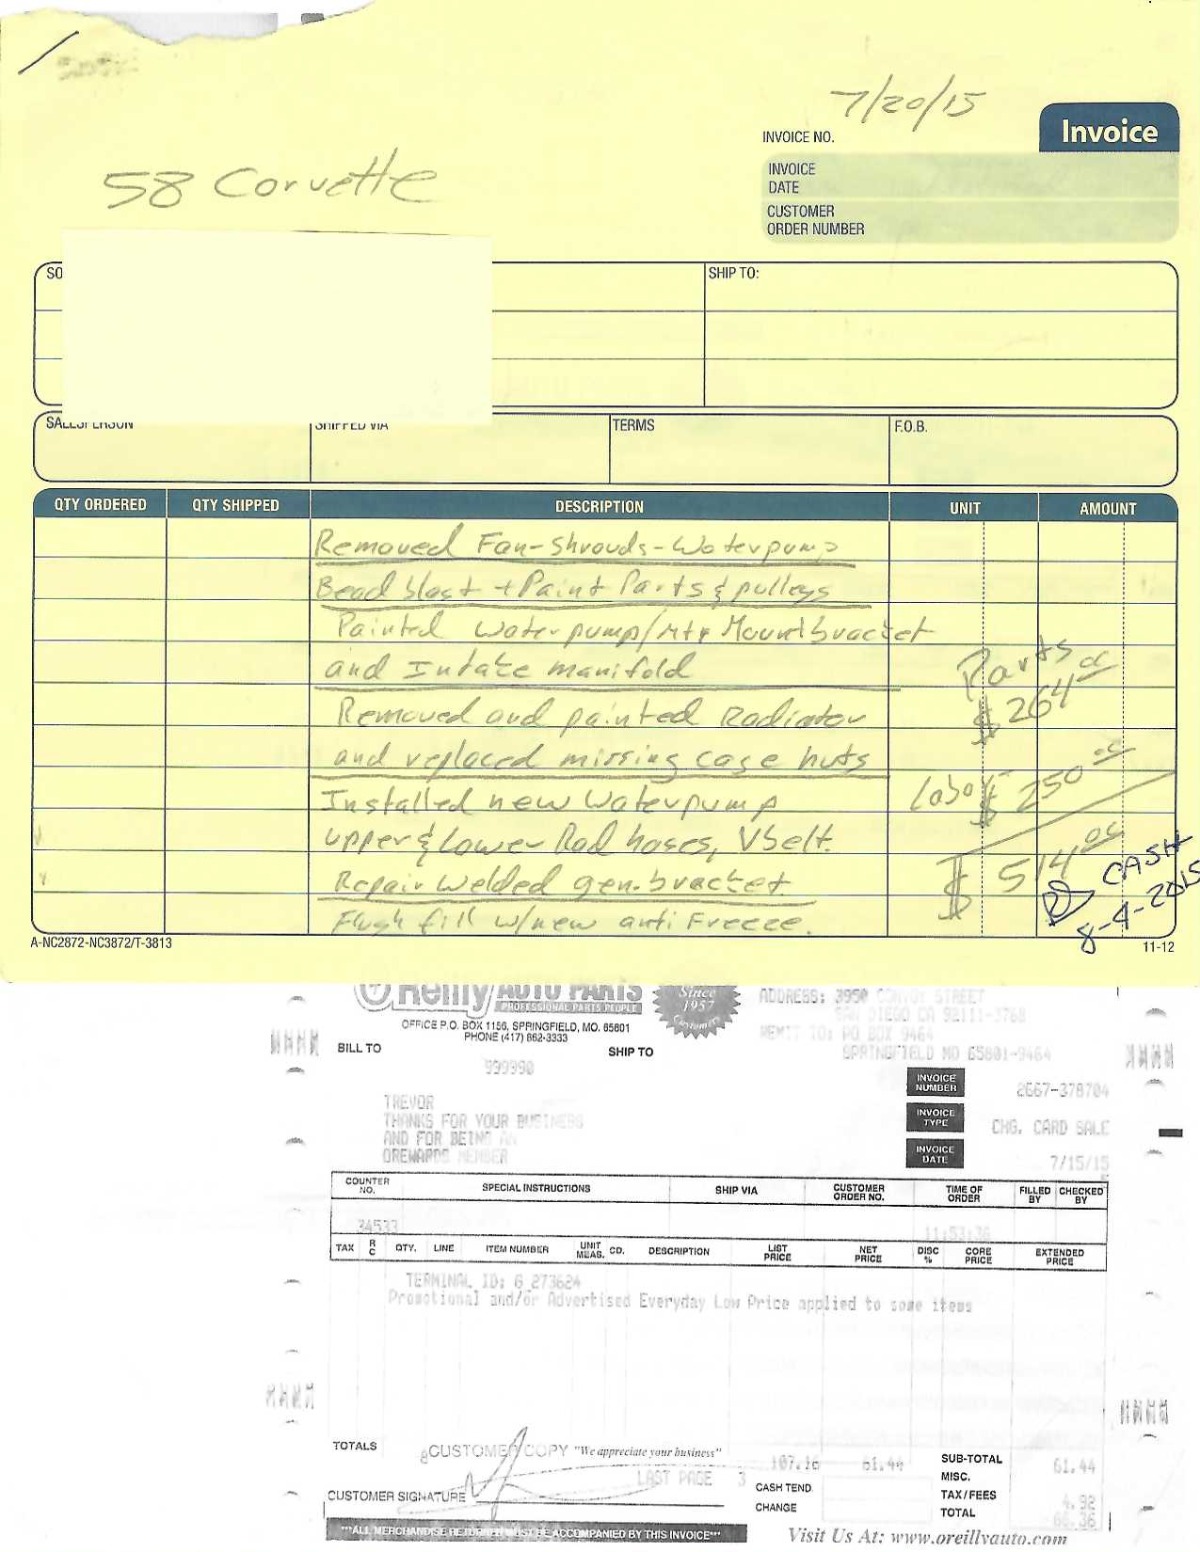 7/20/15
INVOICE NO.
Invoice
58 Corvette
INVOICE
DATE
CUSTOMER
ORDER NUMBER
SO
SHIP TO:
SALESPERSON SHIPPED VIA TERMS F.O.B.
QTY ORDERED QTY SHIPPED DESCRIPTION UNIT AMOUNT
Removed Fan-Shrouds-Waterpump
Bead blast + Paint Parts & pulleys
Painted Waterpump/Mtr Mount bracket
and Intake manifold
Parts
$264
Removed and painted Radiator
and replaced missing case nuts
Installed new Waterpump
Labor $250
upper & Lower Rad hoses, V belt.
Repair Welded gen. bracket
$514
CASH
8-4-2015
Flush fill w/new anti Freeze.
A-NC2872-NC3872/T-3813
11-12
O'Reilly AUTO PARTS
PROFESSIONAL PARTS PEOPLE
Since
1957
OFFICE P.O. BOX 1156, SPRINGFIELD, MO. 65801
PHONE (417) 862-3333
ADDRESS: 3950 CONVOY STREET
SAN DIEGO CA 92111-3768
REMIT TO: PO BOX 9464
SPRINGFIELD MO 65801-9464
BILL TO
SHIP TO
999990
INVOICE
NUMBER
2667-378704
TREVOR
THANKS FOR YOUR BUSINESS
AND FOR BEING AN
OREWARDS MEMBER
INVOICE
TYPE
CHG. CARD SALE
INVOICE
DATE
7/15/15
COUNTER
NO. SPECIAL INSTRUCTIONS SHIP VIA CUSTOMER
ORDER NO. TIME OF
ORDER FILLED
BY CHECKED
BY
34533 11:53:36
TAX R
C QTY. LINE ITEM NUMBER UNIT
MEAS. CD. DESCRIPTION LIST
PRICE NET
PRICE DISC
% CORE
PRICE EXTENDED
PRICE
TERMINAL ID: G 273624
Promotional and/or Advertised Everyday Low Price applied to some items
TOTALS
CUSTOMER COPY "We appreciate your business"
107.16 61.44
SUB-TOTAL 61.44
LAST PAGE 3
MISC.
CASH TEND
TAX/FEES 4.92
CUSTOMER SIGNATURE
CHANGE
TOTAL 66.36
***ALL MERCHANDISE RETURNED MUST BE ACCOMPANIED BY THIS INVOICE***
Visit Us At: www.oreillyauto.com